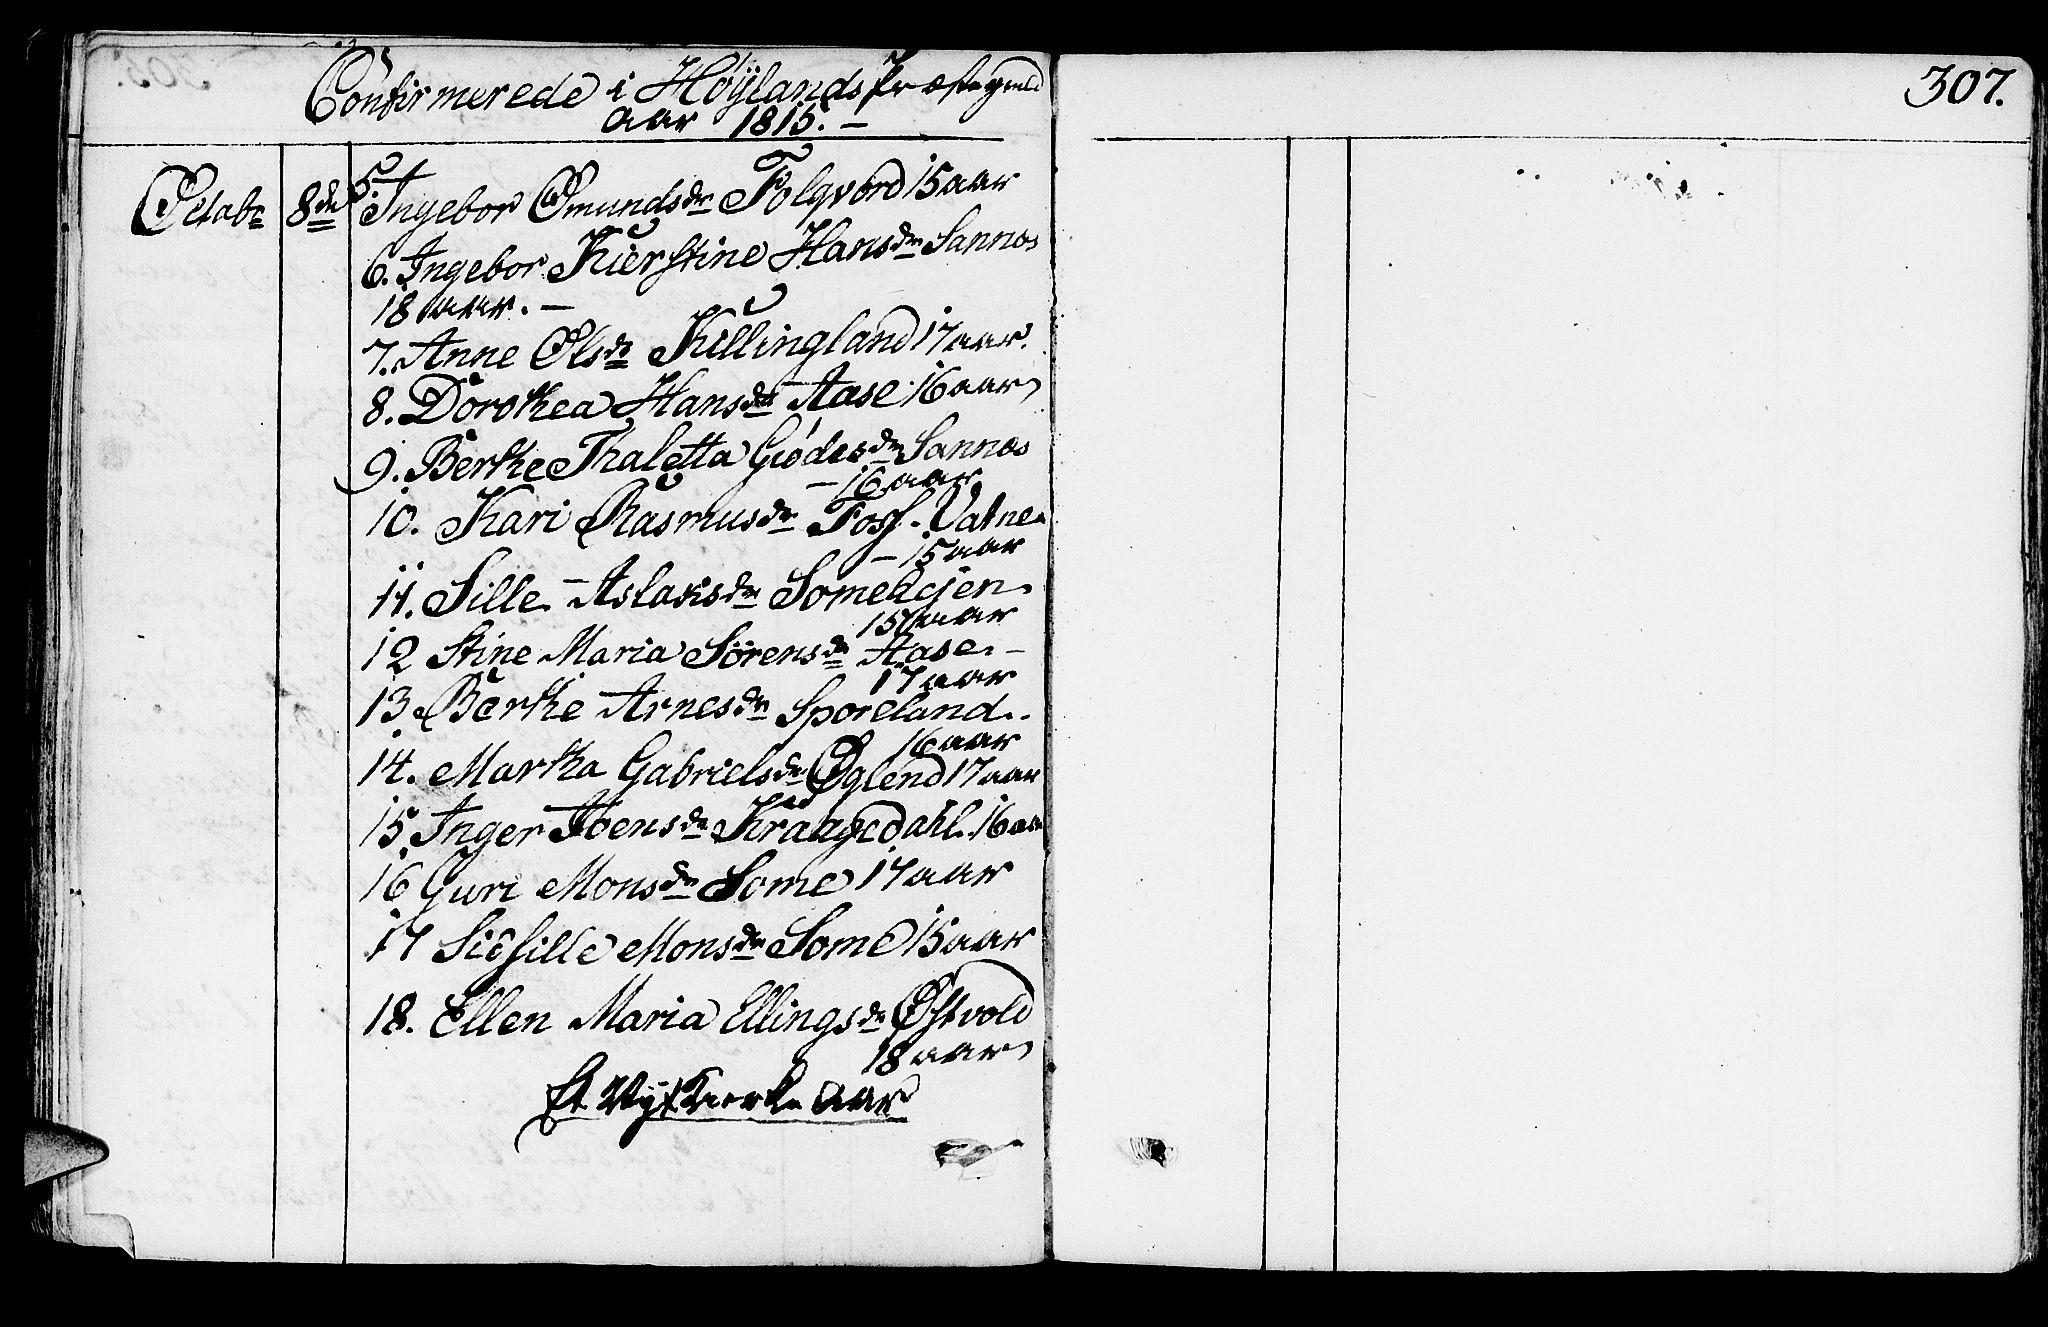 Confirmerede i Höÿlands Præstegield
aar 1815. –
307.
Octobr 8de 5. Ingebor Omundsdr Folqvord 15 aar
6. Ingebor Kierstine Hansdr Sannæs
18 aar. –
7. Anne Olsdr Kullingland 17 aar.
8. Dorothea Hansdr Aase 16 aar
9. Berthe Thaletta Giödesdr Sannæs
– 16 aar
10. Kari Rasmusdr Foss-Vatne
– 15 aar
11. Sille Aslaksdr Someegjen
15 aar
12 Stine Maria Sörensdr Aase –
17 aar
13 Berthe Arnesdr Sporeland.
16 aar
14. Martha Gabrielsdr Öglend 17 aar
15. Inger Joensdr Kraagedahl. 16 aar
16 Guri Monsdr Some 17 aar
17 Sidsille Monsdr Some 15 aar
18. Ellen Maria Ellingsdr Östvold
18 aar